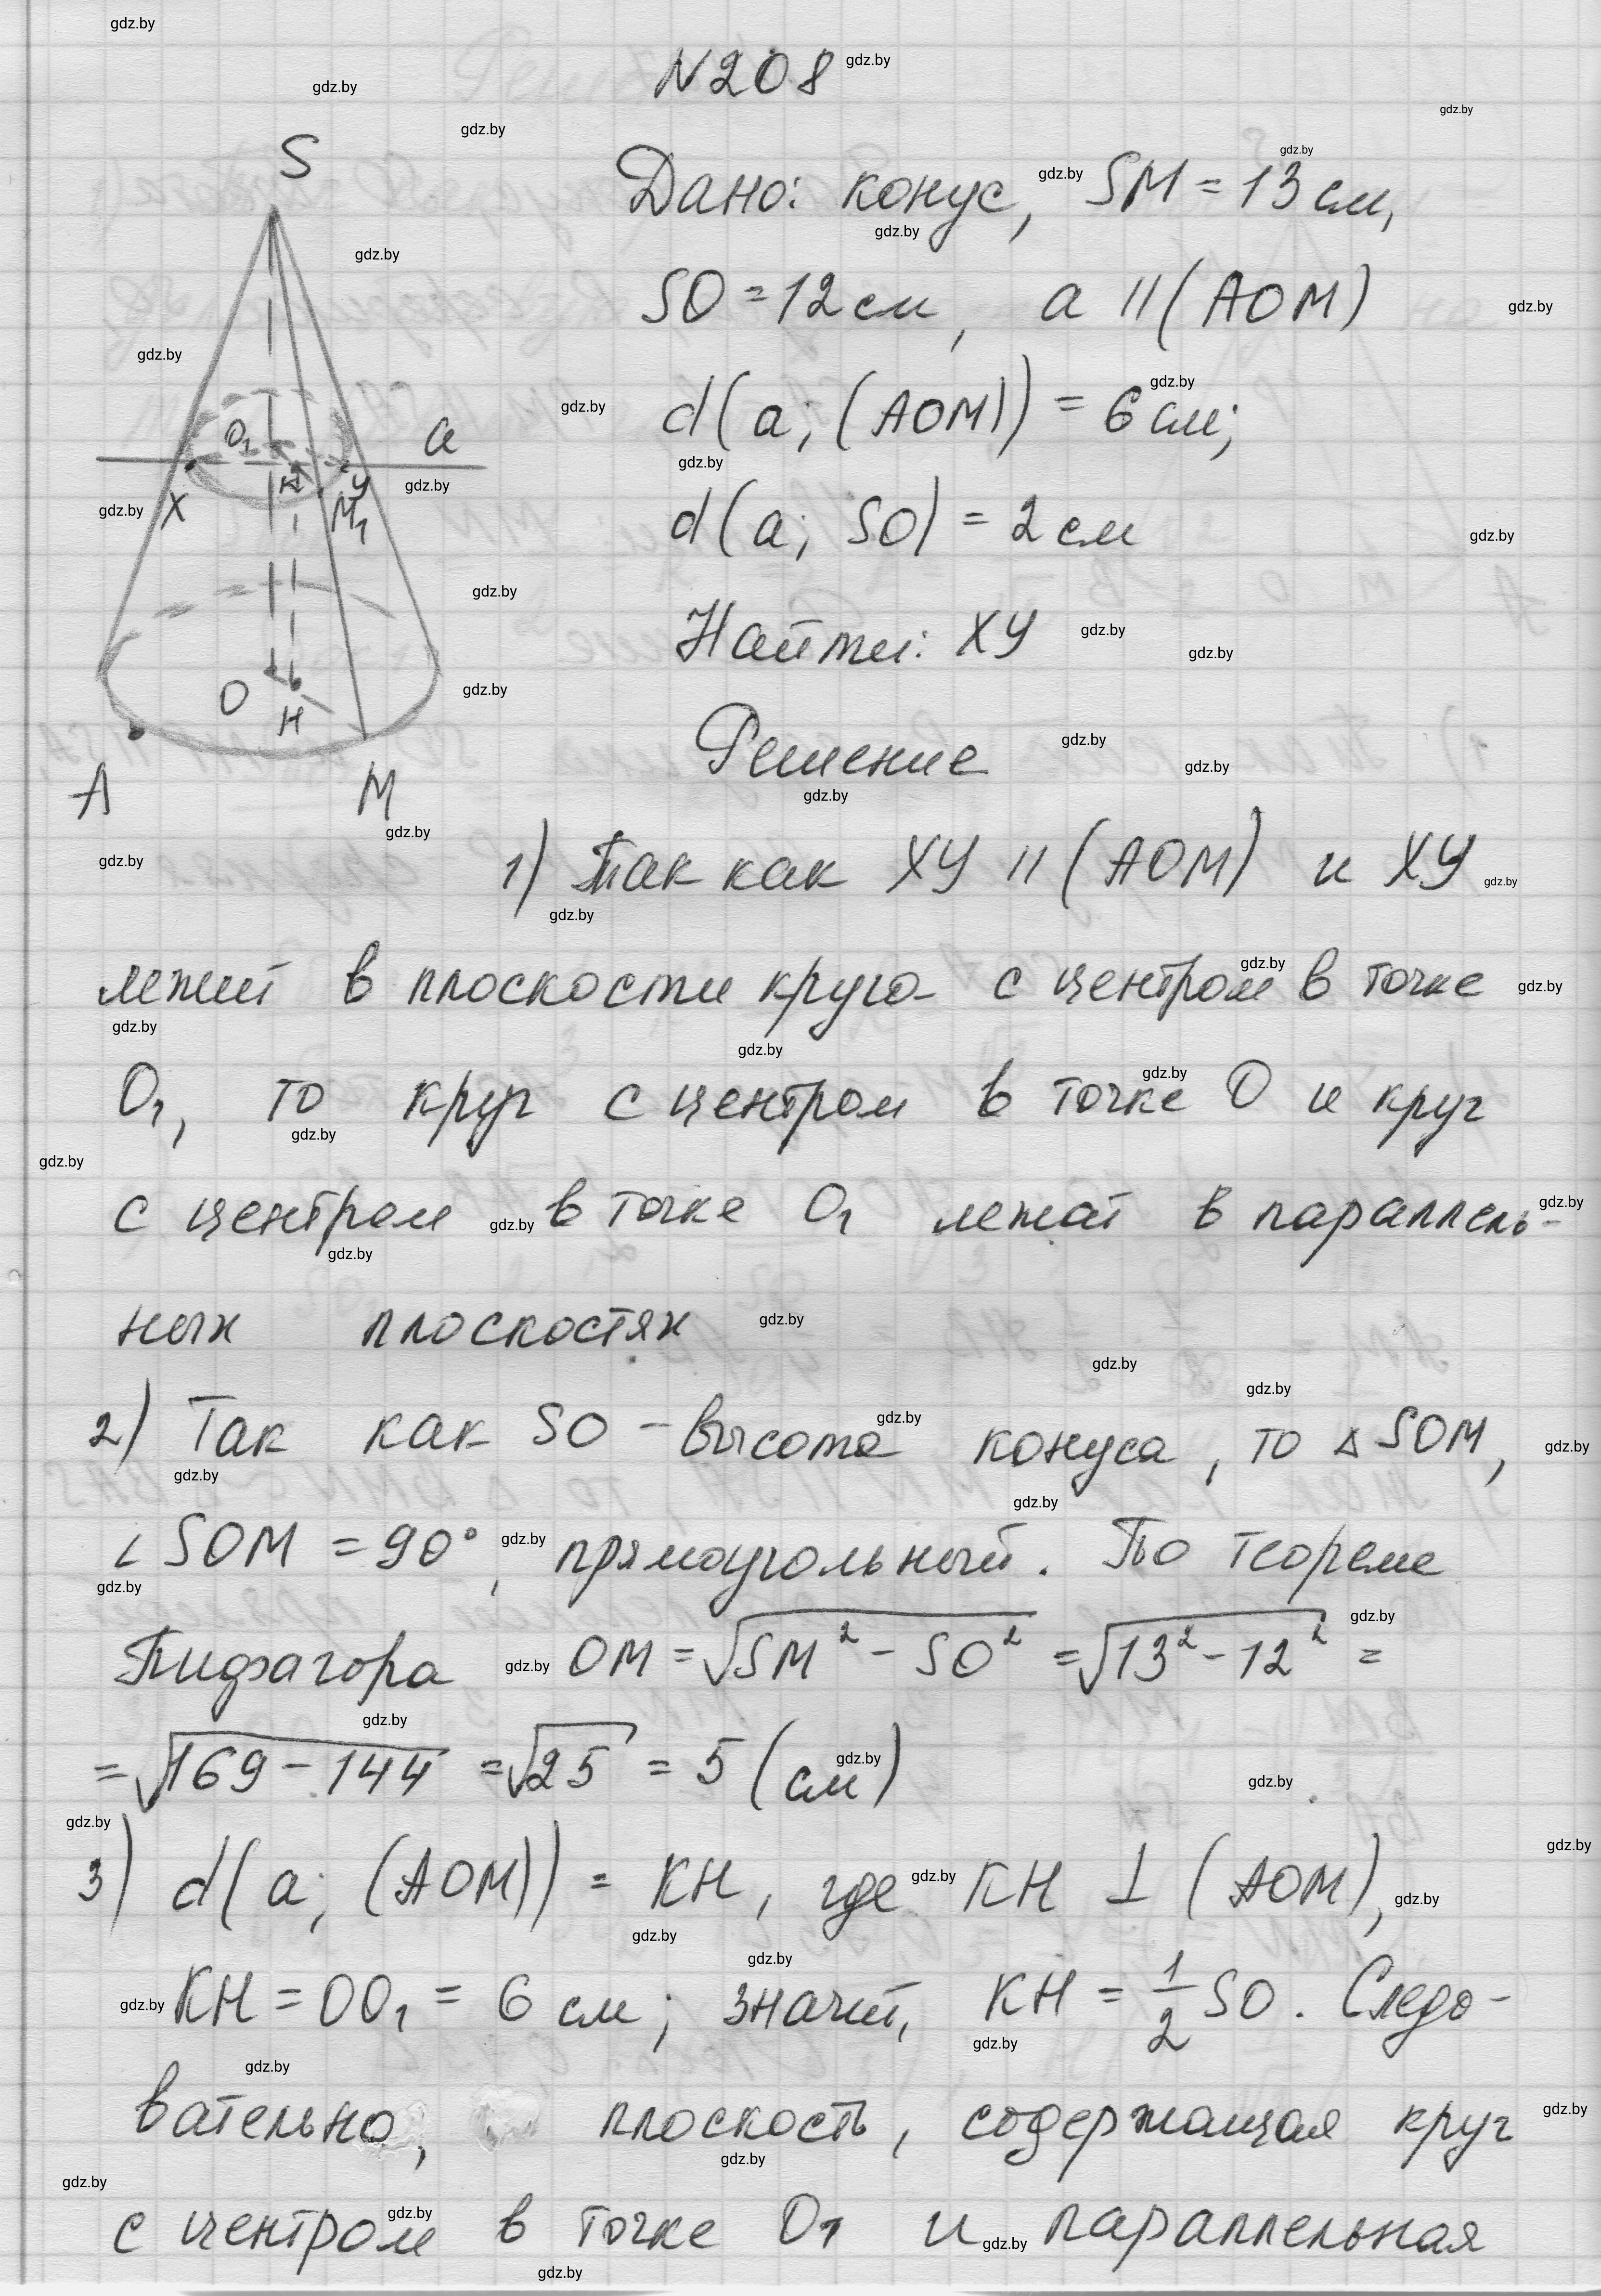 N208
Дано: конус, SM = 13 см,
SO = 12 см, a || (AOM)
d(a; (AOM)) = 6 см;
d(a; SO) = 2 см
Найти: XY
Решение
S
O₁
a
X
K
Y
M₁
O
H
A
M
1) Так как XY || (AOM) и XY
лежит в плоскости круга с центром в точке
O₁, то круг с центром в точке O и круг
с центром в точке O₁ лежат в параллель-
ных плоскостях
2) Так как SO – высота конуса, то △SOM,
∠SOM = 90°, прямоугольный. По теореме
Пифагора OM = √(SM² - SO²) = √(13² - 12²) =
= √(169 - 144) = √25 = 5 (см)
3) d(a; (AOM)) = KH, где KH ⊥ (AOM),
KH = OO₁ = 6 см; значит, KH = 1/2 SO. Следо-
вательно, плоскость, содержащая круг
с центром в точке O₁ и параллельная
gdz.by